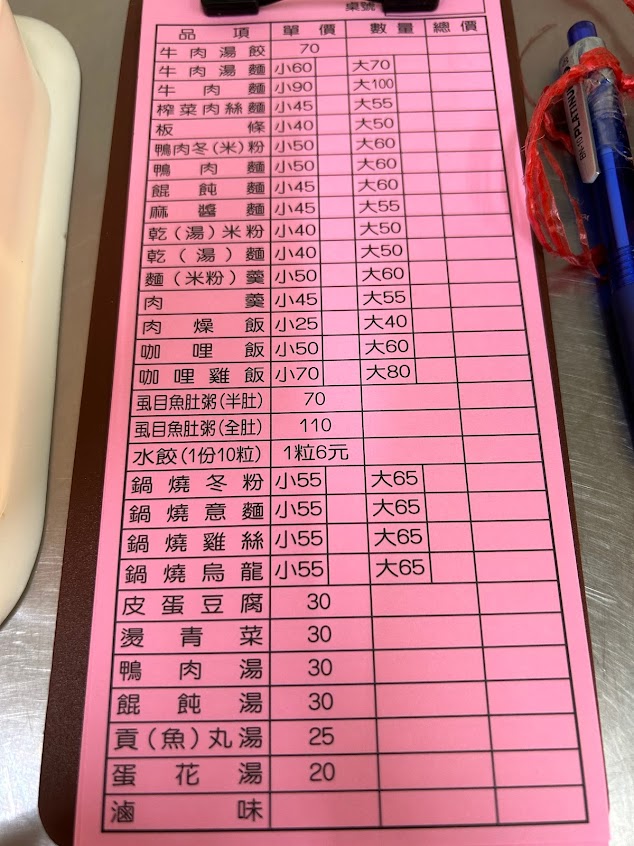 桌號
品項 單價 數量 總價
牛肉湯餃 70
牛肉湯麵 小60 大70
牛肉麵 小90 大100
榨菜肉絲麵 小45 大55
板條 小40 大50
鴨肉冬(米)粉 小50 大60
鴨肉麵 小50 大60
餛飩麵 小45 大60
麻醬麵 小45 大55
乾(湯)米粉 小40 大50
乾(湯)麵 小40 大50
麵(米粉)羹 小50 大60
肉羹 小45 大55
肉燥飯 小25 大40
咖哩飯 小50 大60
咖哩雞飯 小70 大80
虱目魚肚粥(半肚) 70
虱目魚肚粥(全肚) 110
水餃(1份10粒) 1粒6元
鍋燒冬粉 小55 大65
鍋燒意麵 小55 大65
鍋燒雞絲 小55 大65
鍋燒烏龍 小55 大65
皮蛋豆腐 30
燙青菜 30
鴨肉湯 30
餛飩湯 30
貢(魚)丸湯 25
蛋花湯 20
滷味
PLATINUM